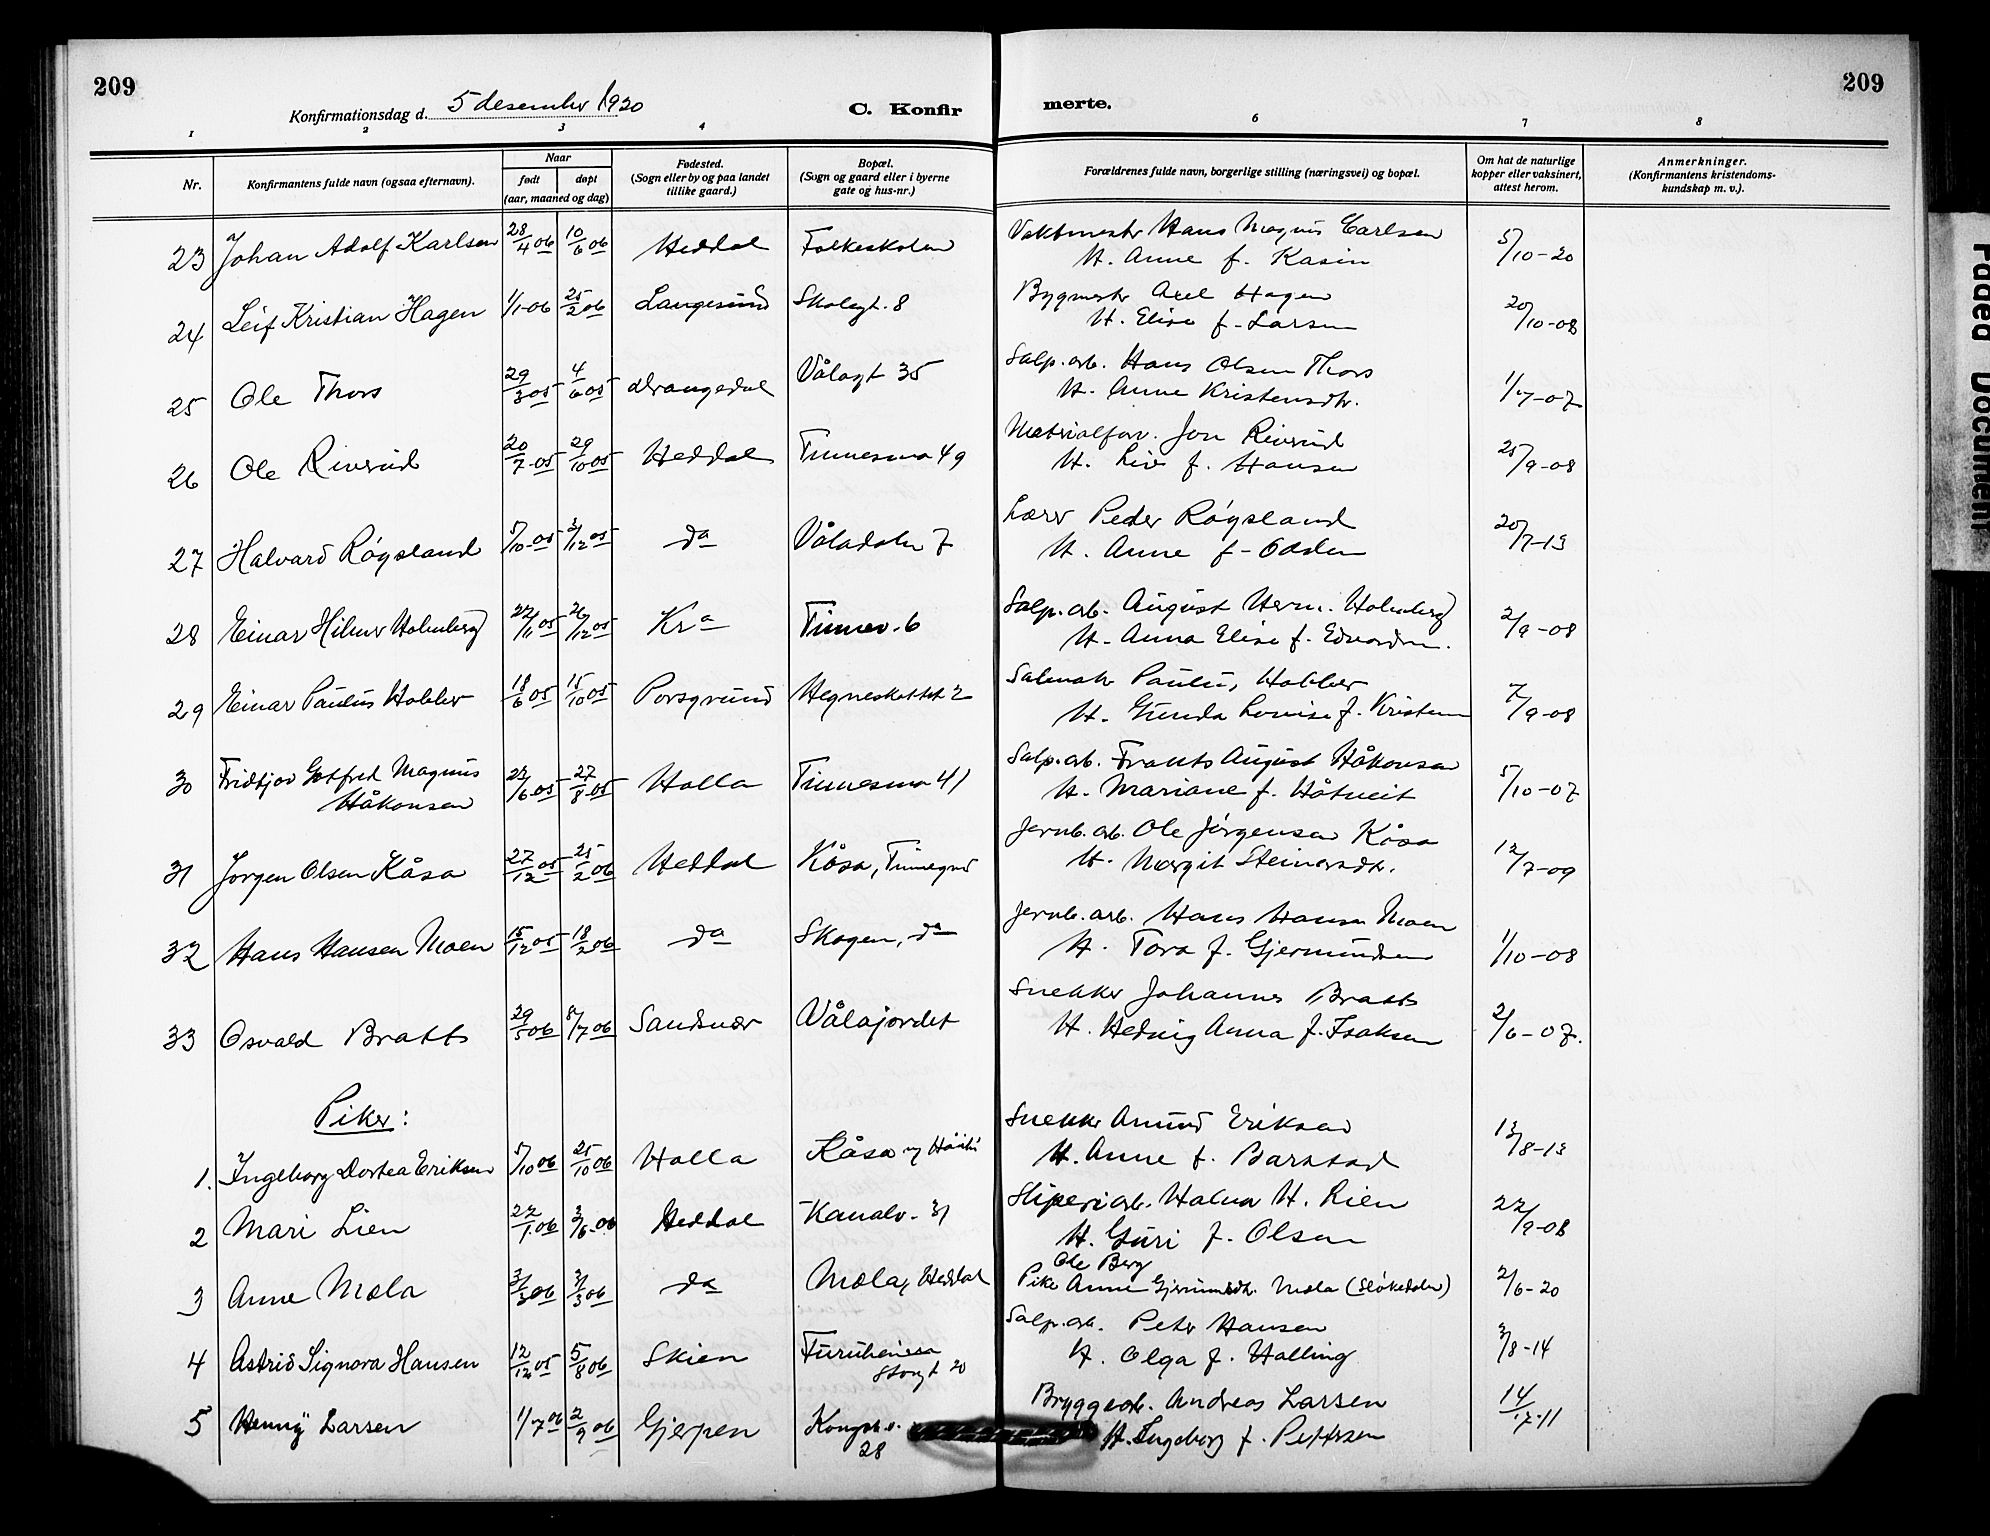 209
209
Konfirmationsdag d. 5 desember 1920
C. Konfir
merte.
1 2 3 4 6 7 8
Nr.
Konfirmantens fulde navn (ogsaa efternavn).
Naar
født
døpt
(aar, maaned og dag)
Fødested.
(Sogn eller by og paa landet
tillike gaard.)
Bopæl.
(Sogn og gaard eller i byerne
gate og hus-nr.)
Forældrenes fulde navn, borgerlige stilling (næringsvei) og bopæl.
Om hat de naturlige
kopper eller vaksinert,
attest herom.
Anmerkninger.
(Konfirmantens kristendoms-
kundskap m. v.).
23 Johan Adolf Karlsen 28/4 06 10/6 06 Heddal Folkeskolen Vaktmestr Hans Magnus Carlsen 5/10-20
H. Anne f. Kasin
24 Leif Kristian Hagen 1/1-06 25/2 06 Langesund Skolegt. 8 Bygmestr Axel Hagen 20/10-08
H. Elise f. Larsen
25 Ole Thors 29/3 05 4/6 05 Drangedal Vålagt 35 Salp. arb. Hans Olsen Thors 1/7-07
H. Anne Kristensdtr.
26 Ole Riverud 20/7-05 29/10 05 Heddal Tinnesmo 49 Materialforv. Jon Riverud 25/9-08
H. Live f. Hansen
27 Halvard Røgsland 5/10-05 3/12 05 da Våladalen 7 Lærer Peder Røgsland 20/7-13
H. Anne f. Odden
28 Einar Hilmer Holmberg 22/11 05 26/12 05 Kra Tinnev. 6 Salp. arb. August Herm. Holmberg 2/9-08
H. Anna Elise f. Edvardsen.
29 Einar Paulus Hobber 18/6 05 15/10 05 Porsgrund Hegneskottet 2 Salmak Paulus Hobber 7/9-08
H. Gunda Lovise f. Kristensen
30 Fridtjov Gotfred Magnus 23/6-05 27/8-05 Holla Tinnesmo 41 Salp. arb. Frants August Håkonsen 5/10-07
Håkonsen H. Mariane f. Håtveit
31 Jørgen Olsen Kåsa 27/12 05 25/2 06 Heddal Kåsa, Tinnegrd Jernb. arb. Ole Jørgensen Kåsa 12/7-09
H. Margit Steinarsdtr.
32 Hans Hansen Moen 15/12 05 18/2 06 da Skogen, da Jernb. arb. Hans Hansen Moen 1/10-08
H. Tora f. Gjermundsen
33 Osvald Bratts 29/5 06 8/7 06 Sandsvær Vålajordet Snekker Johannes Bratts 2/6-07.
H. Hedvig Anna f. Isaksen
Piker:
1. Ingeborg Dortea Eriksen 5/10 06 25/10 06 Holla Kåsa Snekker Amund Eriksen 13/8-13
H. Anne f. Barstad
2 Mari Lien 22/1 06 3/6-06 Heddal Kanalv. 31 Sliperiarb. Halvor H. Lien 22/9-08
H. Guri f. Olsen
Ole Berg
3 Anne Mæla 3/3 06 3/3 06 da Mæla, Heddal Pike Anne Gjermundsdtr. Mæla 2/6-20
4 Astrid Signora Hansen 12/12 05 5/8 06 Skien Furuheim Salp. arb. Peter Hansen 3/8-14
Storgt 20 H. Olga f. Halling
5 Henny Larsen 1/7 06 2/9 06 Gjerpen Kongsb. v. Bryggearb. Andreas Larsen 14/7-11
28 H. Ingeborg f. Pettersen
Faded Document